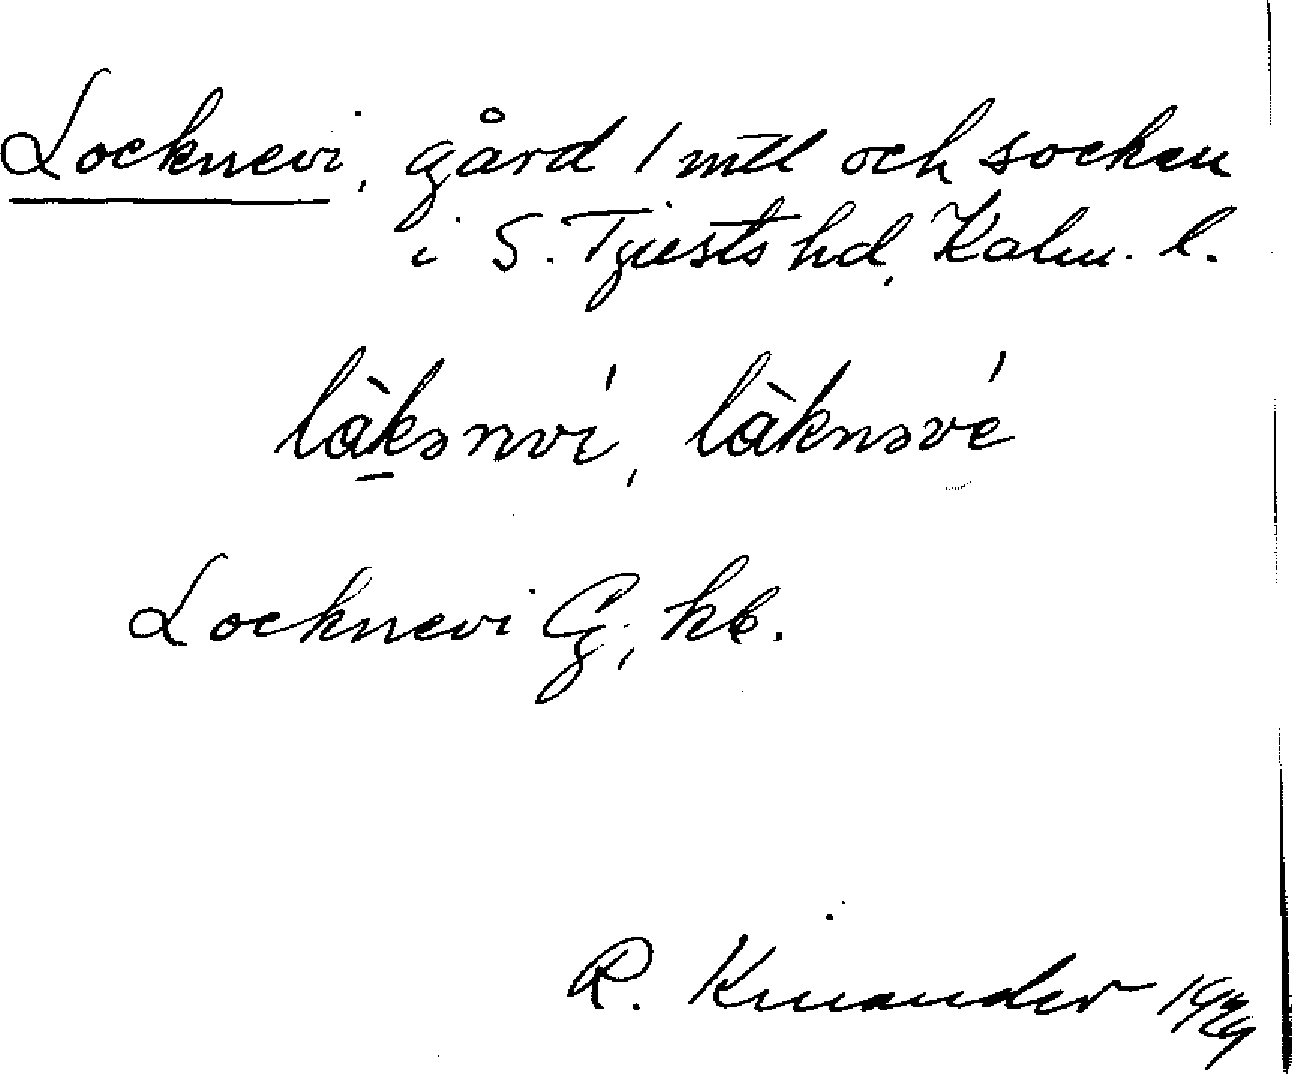 Locknevi, gård 1 mtl och socken
i S. Tjusts hd, Kalm. l.
låkənvi, låknəvé
Locknevi G, kb.
R. Kinander